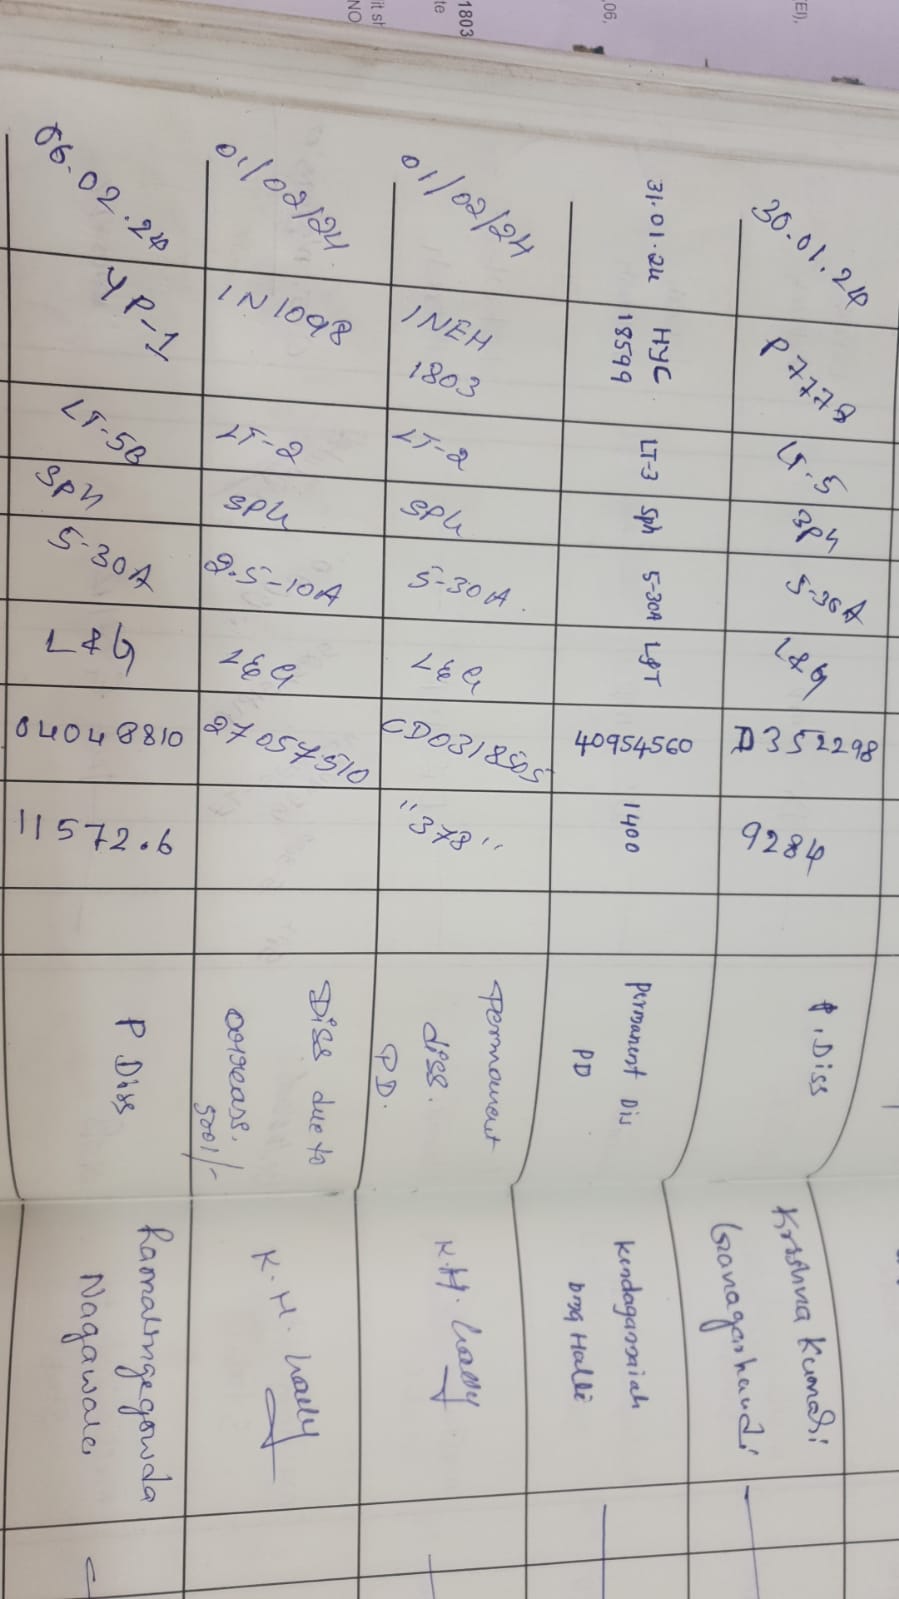 30.01.24 P7778 LT-5 3Ph 5-30A L&G D352298 9284 P.Diss Krishna Kumari
31.01.24 HYC LT-3 Sph 5-30A L&T 40954560 1400 Permanent Dis Kendagannaiah
18599 PD Halli
01/02/24 INEH LT-2 SPh 5-30A. L&G CD0318505 "378" Permanent K.H.
1803 diss.
PD.
01/02/24 1N1098 LT-2 SPh 2.5-10A L&G 27057510 Diss due to K.H.
5001/-
06.02.24 YP-1 LT-5B SPh 5-30A L&G 04048810 11572.6 P Diss Ramalingegowda
Nagawala
1803
te
it sh
NO
.06,
TEI),